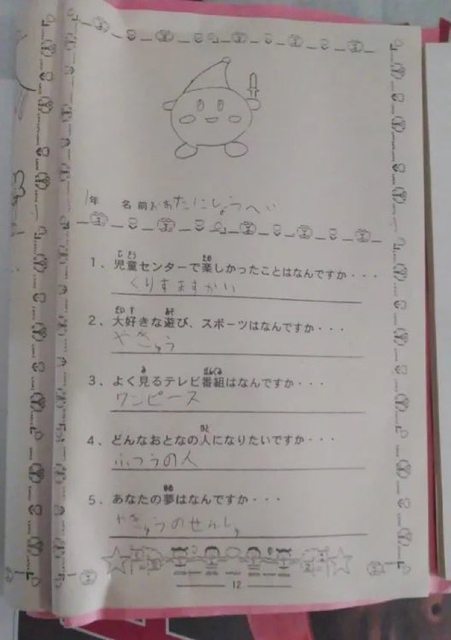 1年 名前 おおたにしょうへい
1、児童センターで楽しかったことはなんですか・・・
くりすますかい
2、大好きな遊び、スポーツはなんですか・・・
やきゅう
3、よく見るテレビ番組はなんですか・・・
ワンピース
4、どんなおとなの人になりたいですか・・・
ふつうの人
5、あなたの夢はなんですか・・・
やきゅうのせんしゅ
12